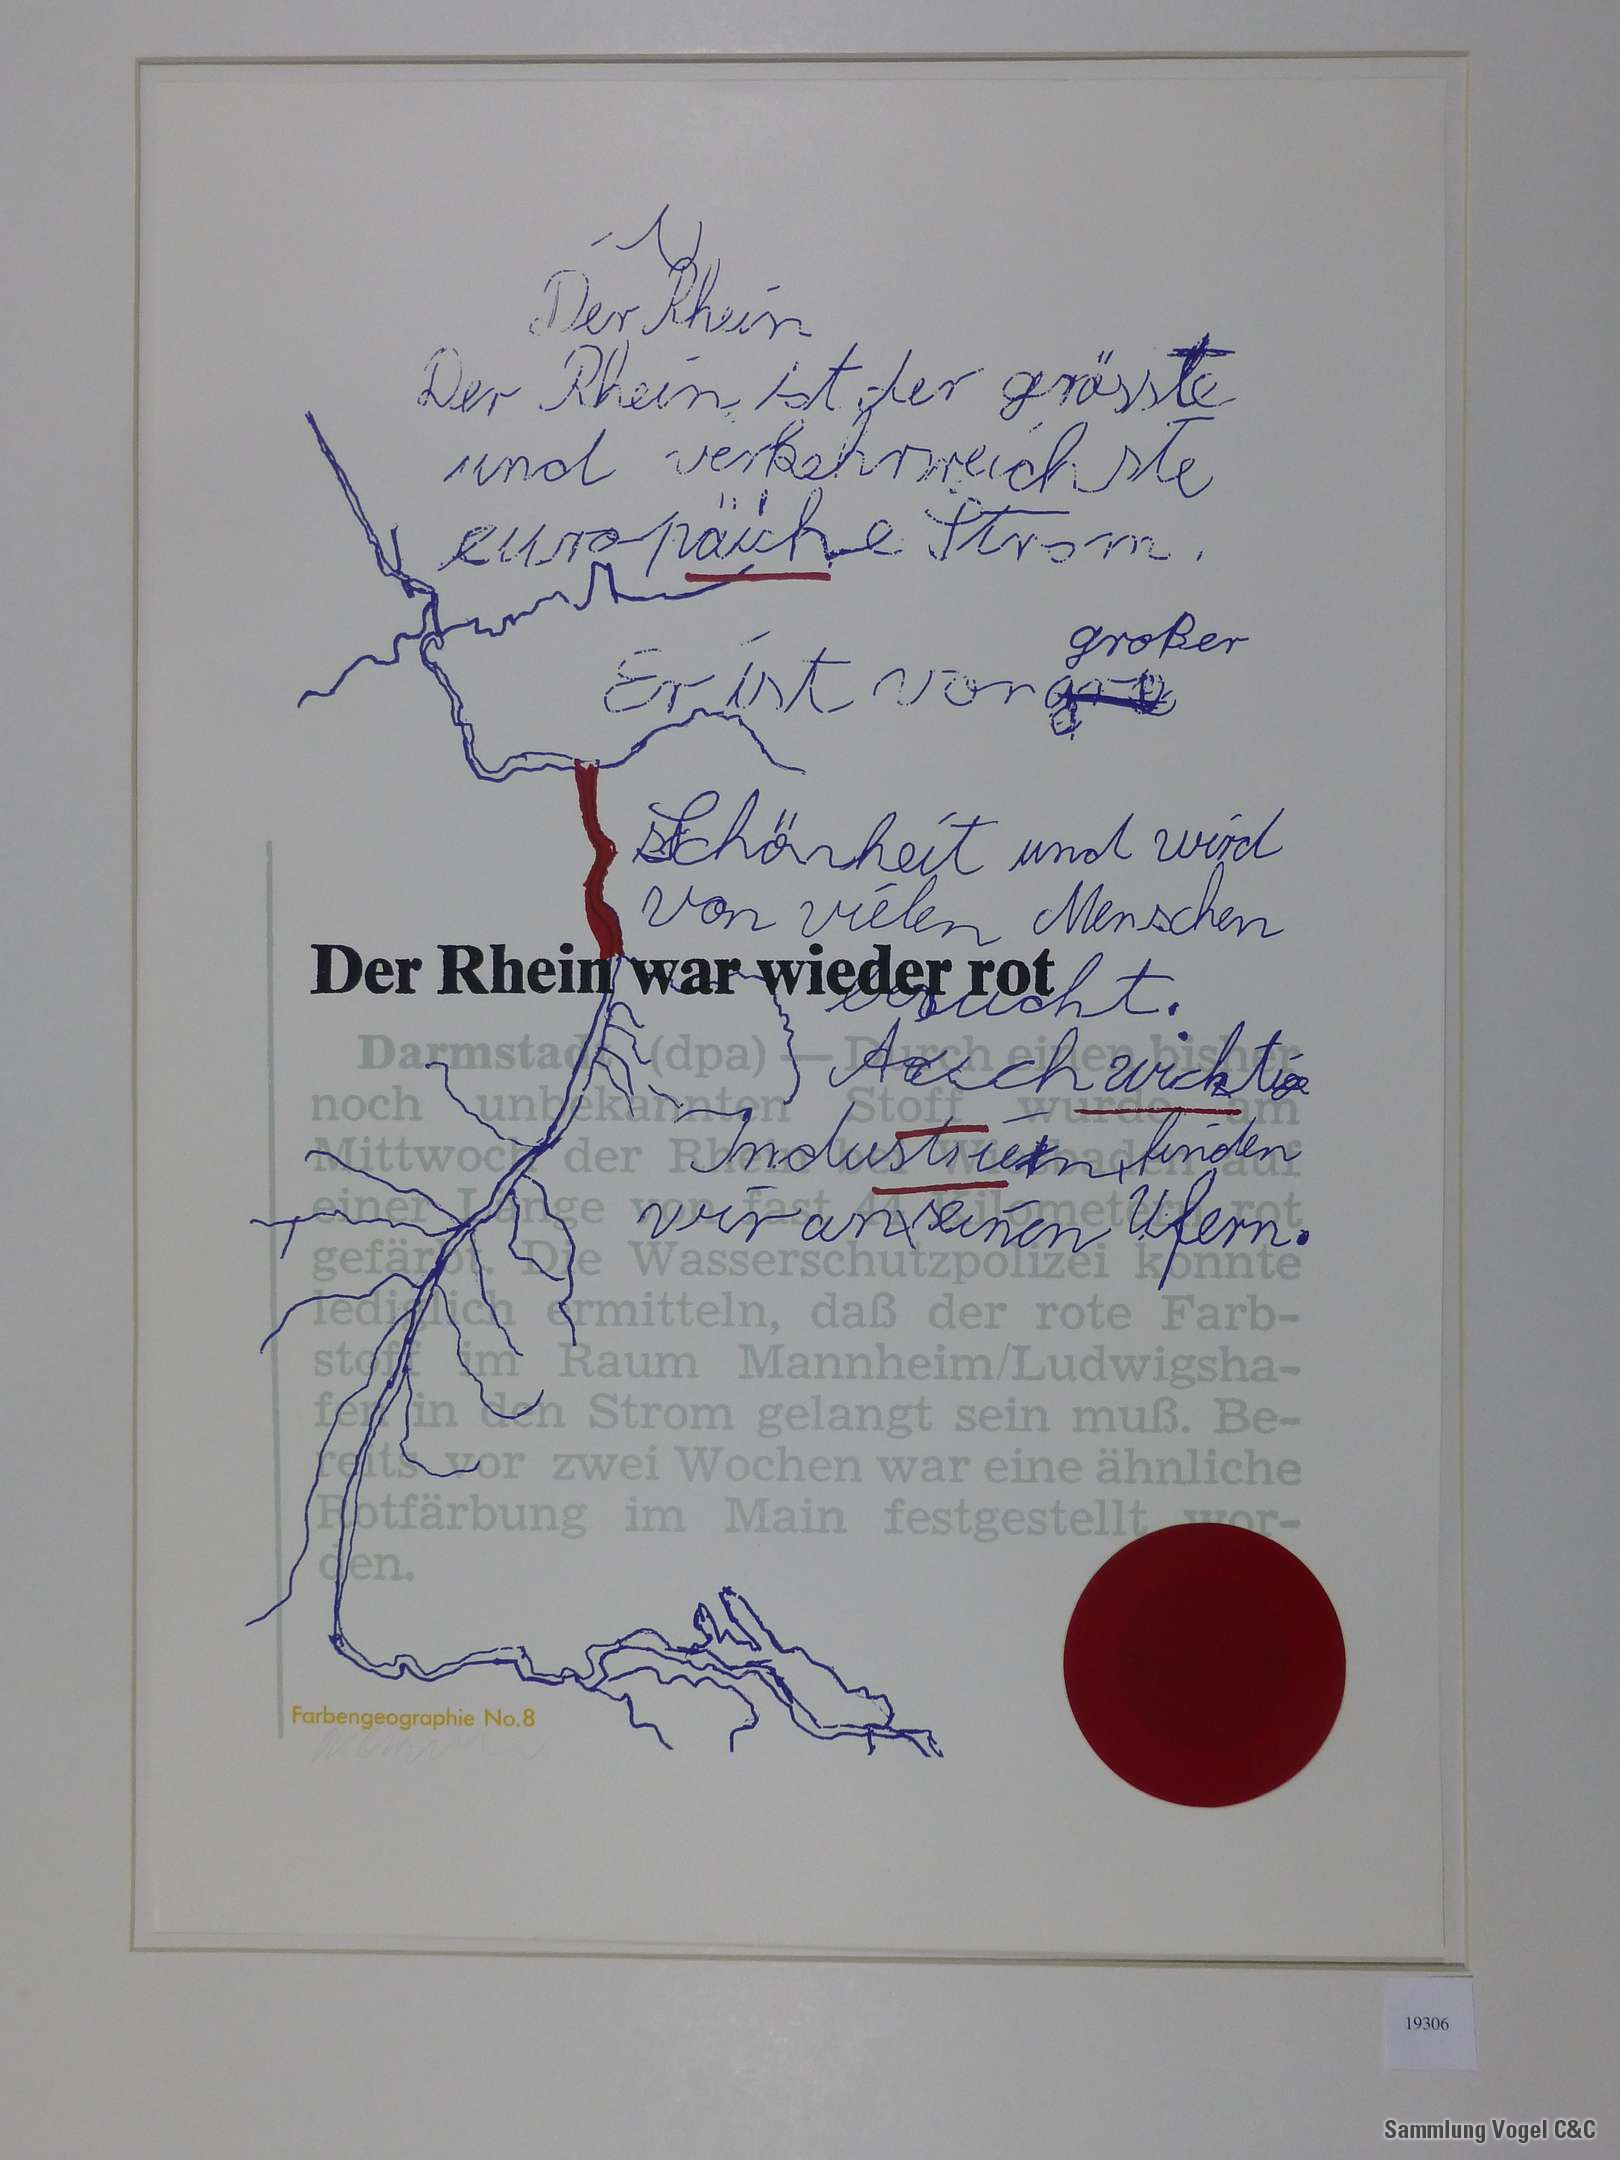 Der Rhein
Der Rhein ist der grösste
und verkehrsreichste
europäiche Strom.
großer
Er ist von
Schönheit und wird
von vielen Menschen
Der Rhein war wieder rot
besucht.
Darmstadt (dpa) — Durch einen bisher
Auch wichtige
noch unbekannten Stoff wurde am
Mittwoch der Rhein bei Wiesbaden auf
Industrien finden
einer Länge von fast 44 Kilometern rot
wir an seinen Ufern.
gefärbt. Die Wasserschutzpolizei konnte
lediglich ermitteln, daß der rote Farb-
stoff im Raum Mannheim/Ludwigsha-
fen in den Strom gelangt sein muß. Be-
reits vor zwei Wochen war eine ähnliche
Rotfärbung im Main festgestellt wor-
den.
Farbengeographie No.8
19306
Sammlung Vogel C&C